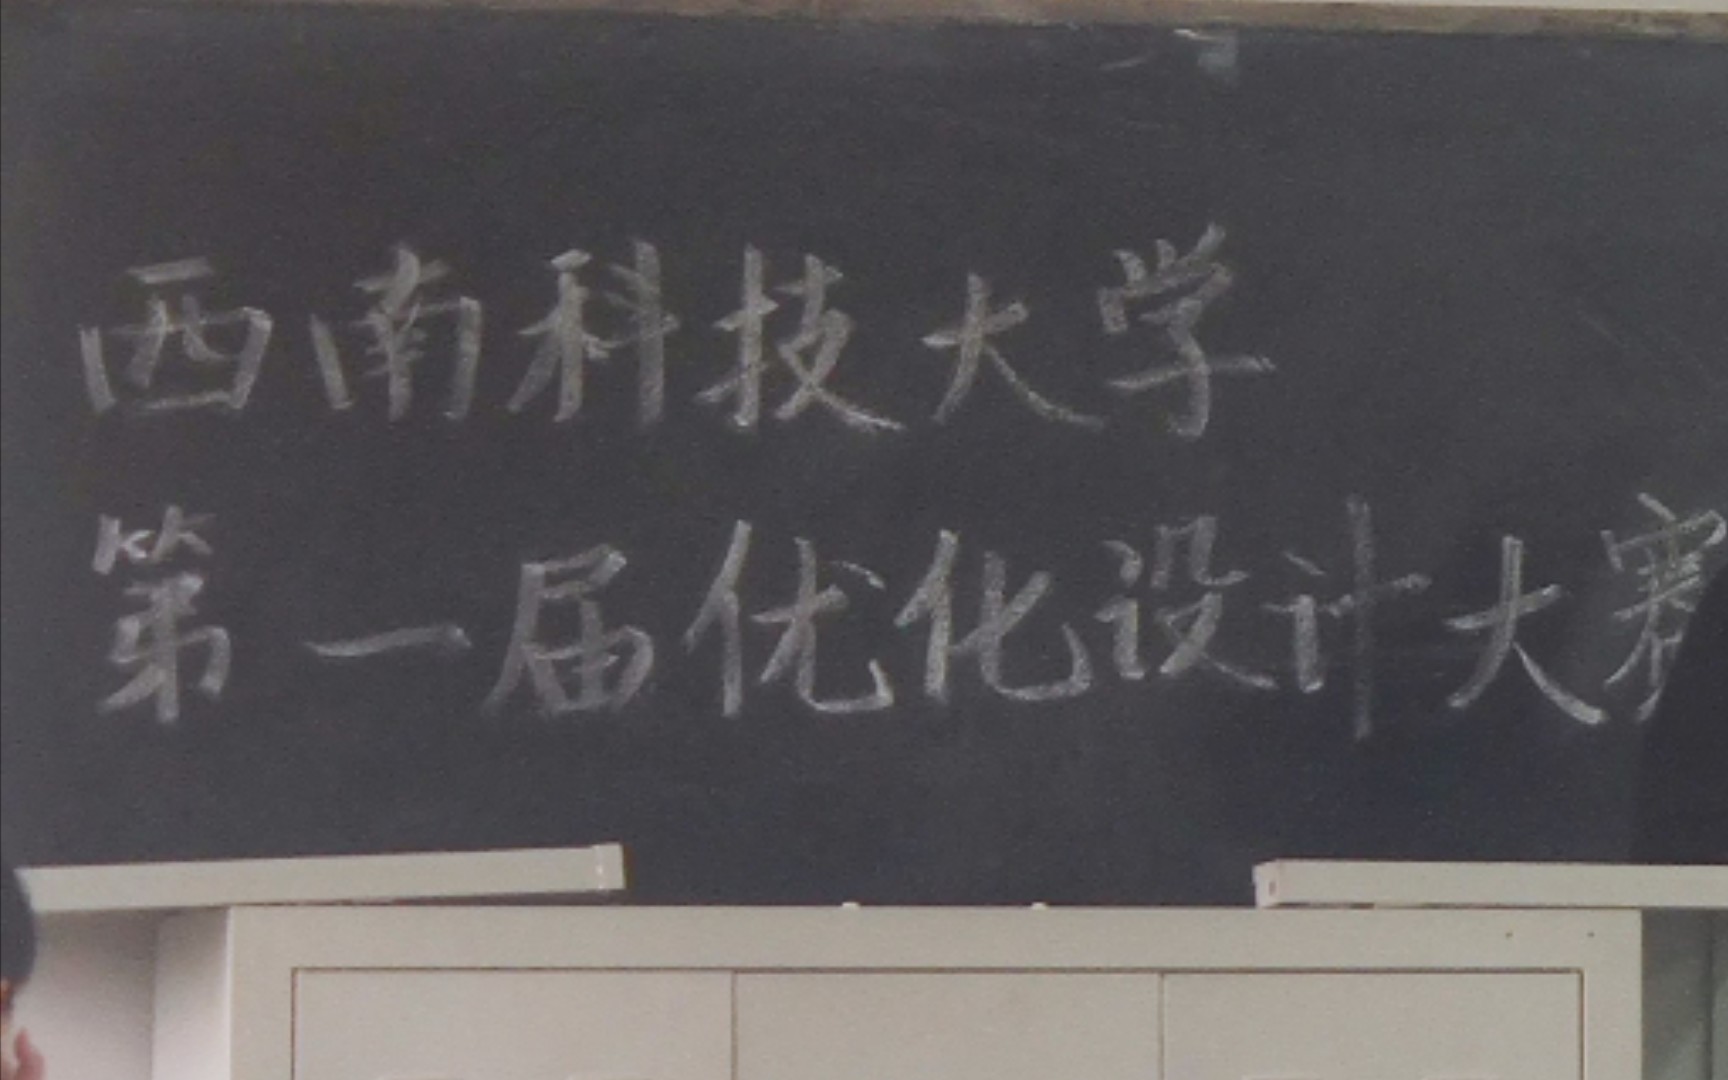 西南科技大学
第一届优化设计大赛